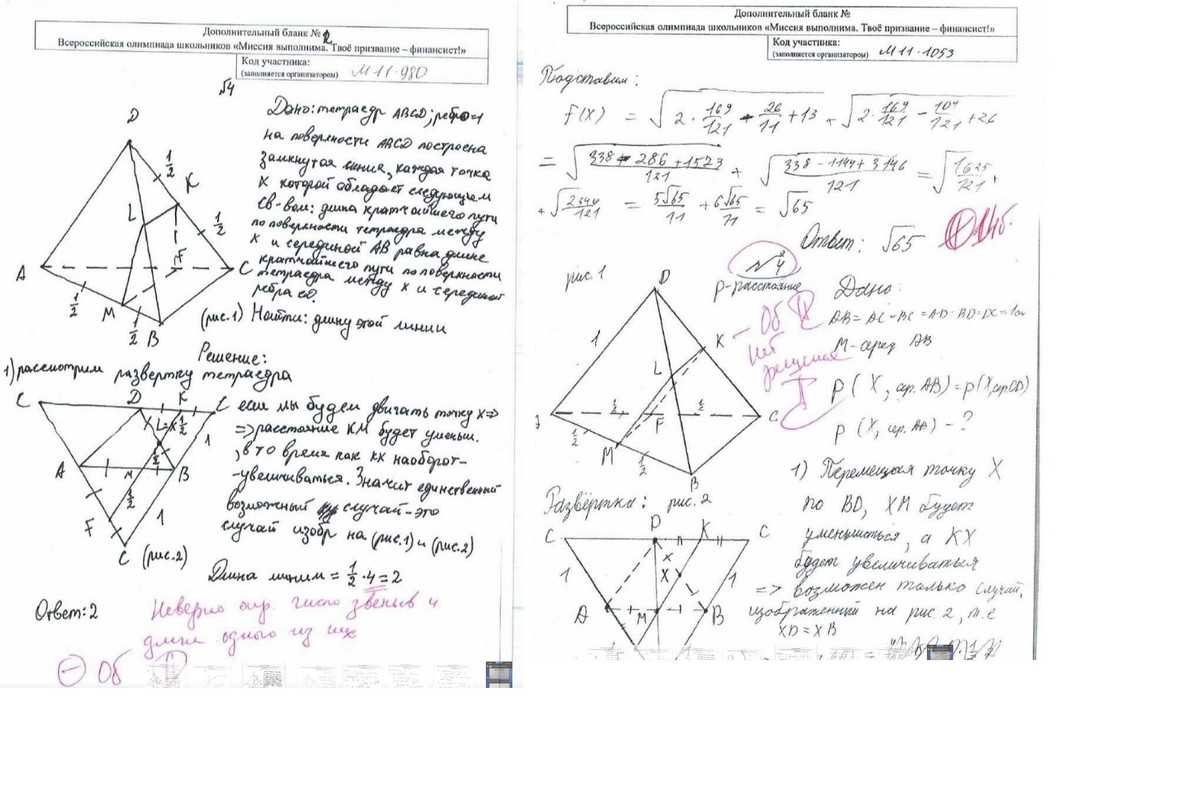 Дополнительный бланк № 2
Всероссийская олимпиада школьников «Миссия выполнима. Твоё призвание – финансист!»
Код участника:
(заполняется организатором) М11-980
№4
Дано: тетраедр ABCD; ребро=1
на поверхности ABCD построена
замкнутая линия, каждая точка
X которой обладает следующим
св-вом: длина кратчайшего пути
по поверхности тетраедра между
X и серединой AB равна длине
кратчайшего пути по поверхности
тетраедра между X и серединой
ребра CD.
(рис.1) Найти: длину этой линии
D
1/2
K
L
1/2
A
F
C
1/2
M
1/2
B
Решение:
1) рассмотрим развертку тетраедра
C
D
K
C
L=X
1/2
1
A
M
B
1/2
F
1
C (рис.2)
если мы будем двигать точку X =>
=> расстояние KM будет уменьш.
, в то время как KX наоборот-
-увеличиваться. Значит единственный
возможный случай-это
случай изобр на (рис.1) и (рис.2)
Длина линии = 1/2 · 4 = 2
Ответ: 2
Неверно опр. число звеньев и
длина одного из них
⊖ 0б
Дополнительный бланк №
Всероссийская олимпиада школьников «Миссия выполнима. Твоё призвание – финансист!»
Код участника:
(заполняется организатором) М11-1053
Подставим:
f(X) = √(2·169/121 - 26/11 + 13) + √(2·169/121 - 104/121 + 26)
= √((338 - 286 + 1573)/121) + √((338 - 1144 + 3146)/121) = √(1625/121) +
+ √(2340/121) = 5√65/11 + 6√65/11 = √65
Ответ: √65
⊕ 14б.
№4
рис.1
D
1
K
L
1/2
F
1/2
C
1/2
M
1/2
B
ρ-расстояние
- 0б
нет
решения
Дано:
AB=AC=BC=AD=BD=DC=1
M-серед AB
ρ(X, сер.AB) = ρ(X, сер.CD)
ρ(X, сер. AB) - ?
Развёртка: рис.2
C
D
K
C
1
X
1
A
M
B
1) Перемещая точку X
по BD, XM будет
уменьшаться, а KX
будет увеличиваться
=> возможен только случай,
изображенный на рис 2, т.е
XD = XB